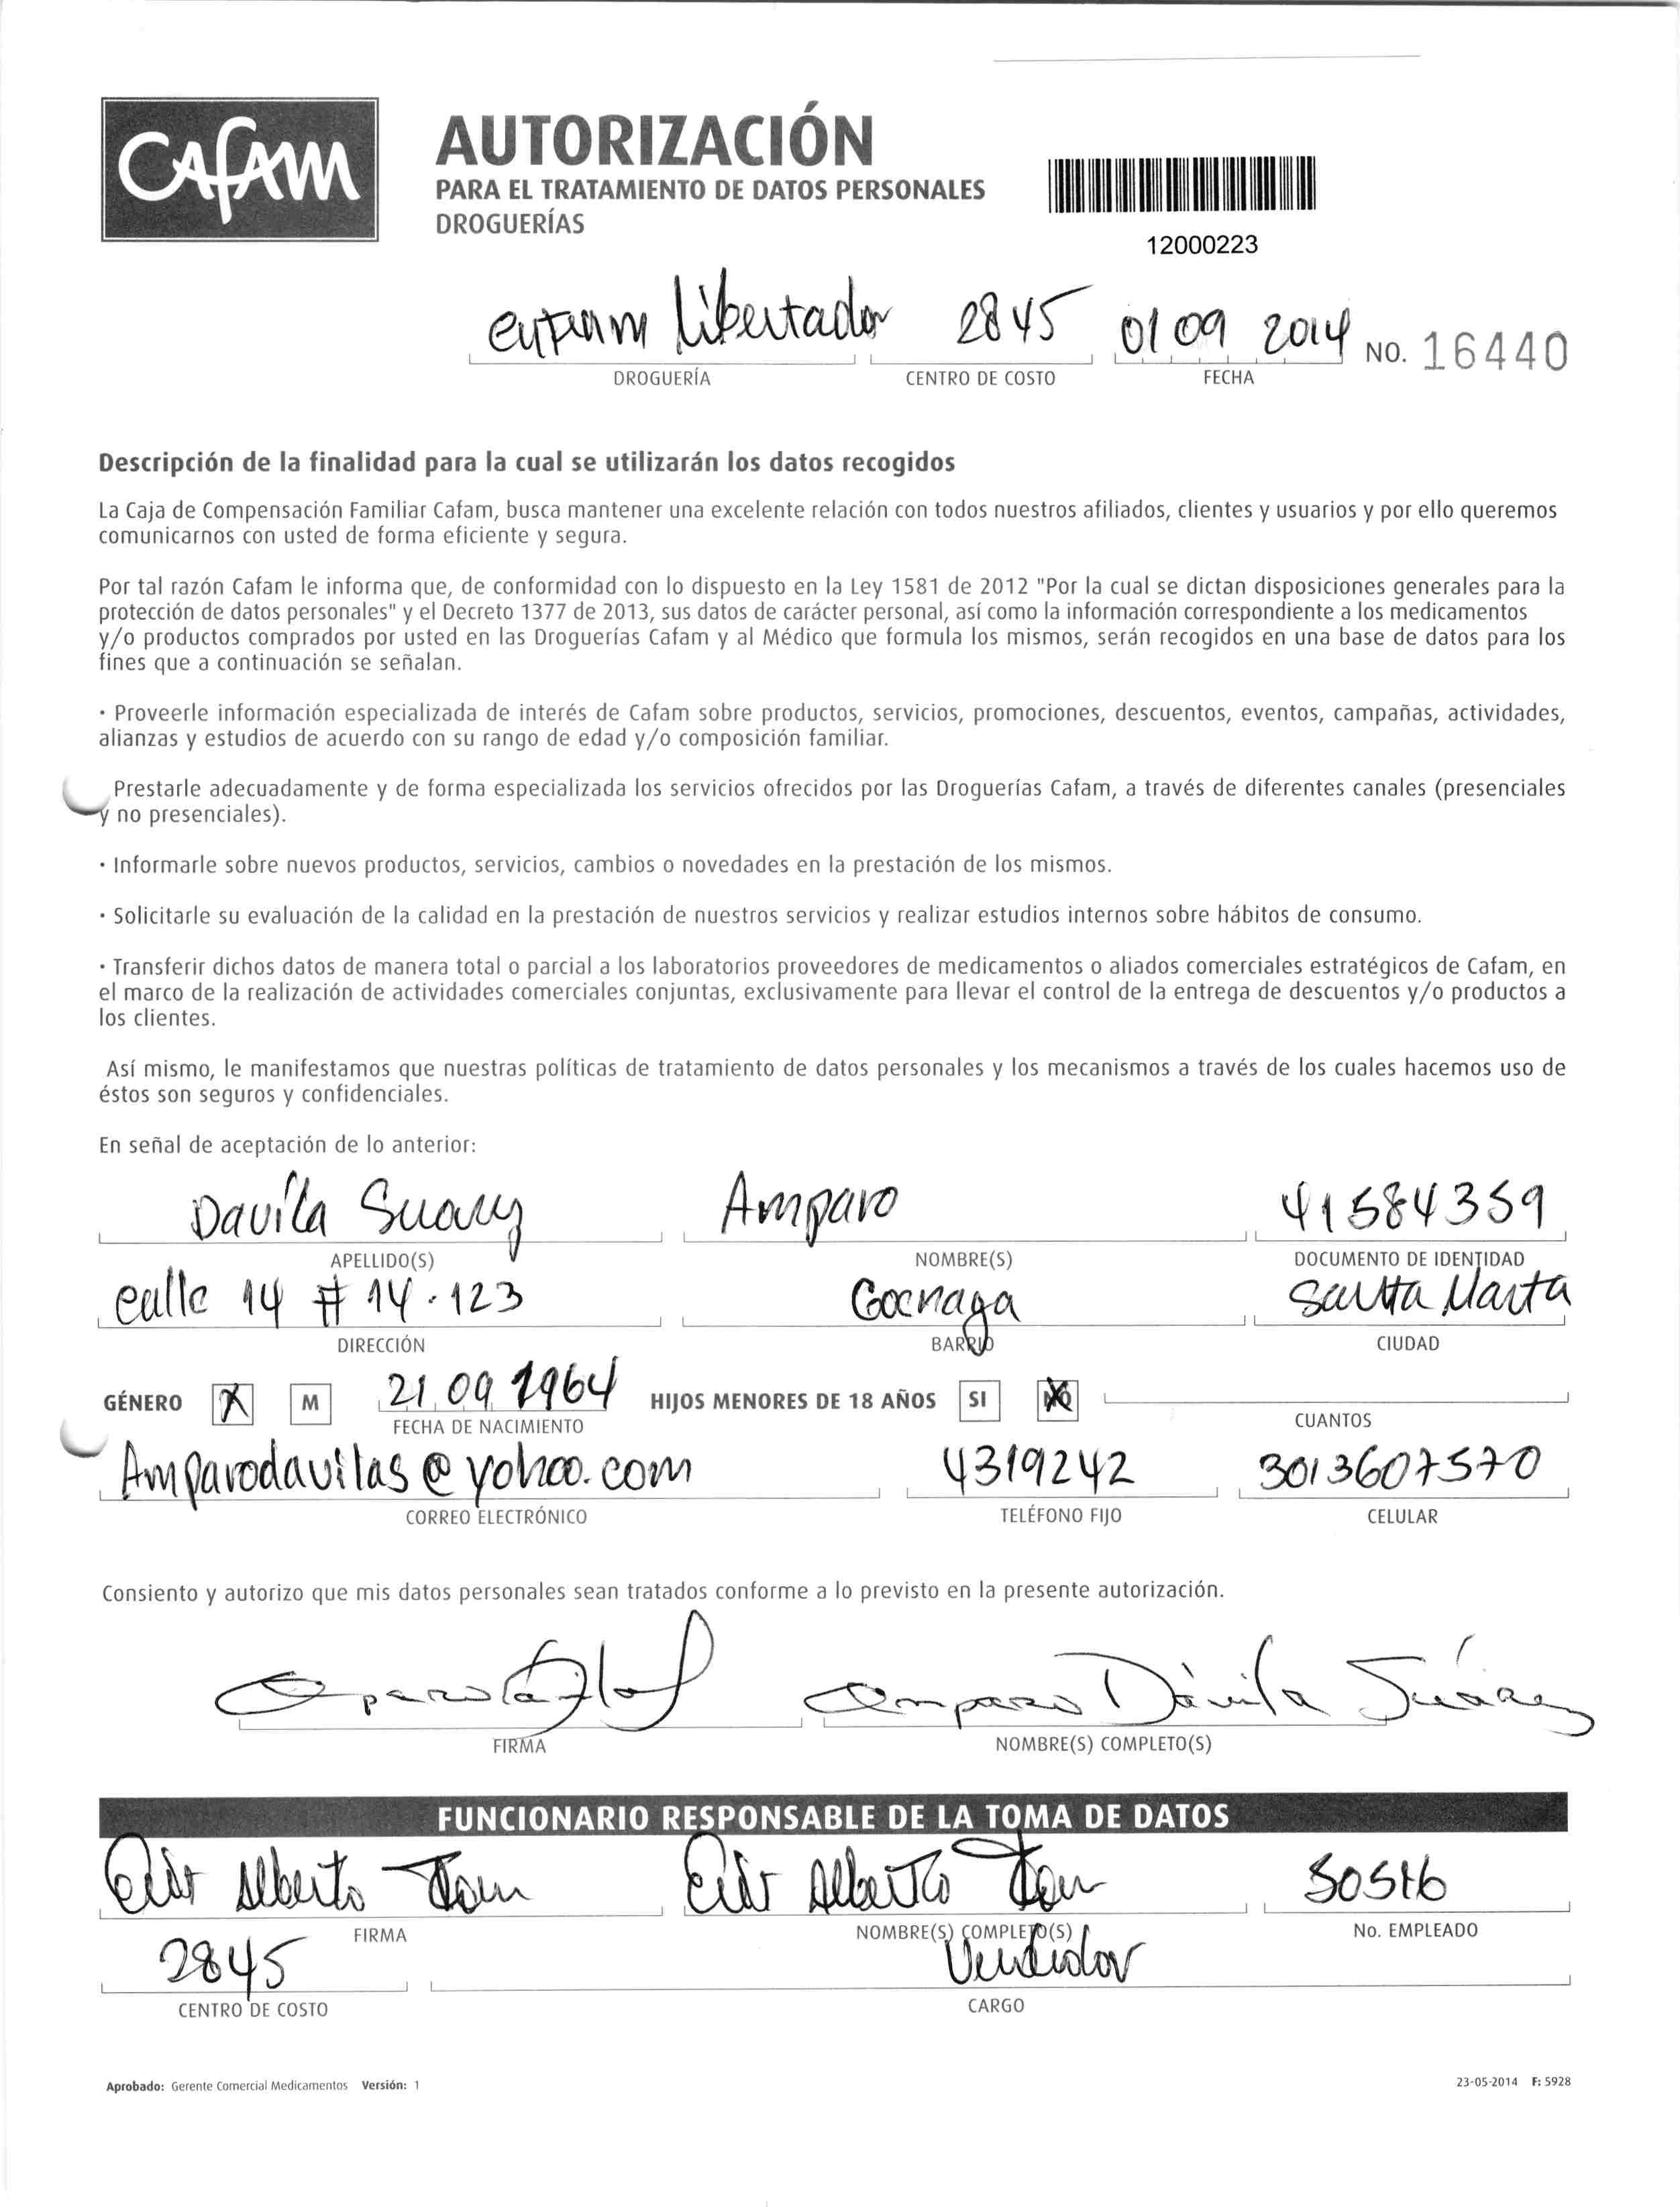 Cafam
AUTORIZACIÓN
PARA EL TRATAMIENTO DE DATOS PERSONALES
DROGUERÍAS
12000223
Libertador 2845 01 09 2014 NO. 16440
DROGUERÍA CENTRO DE COSTO FECHA
Descripción de la finalidad para la cual se utilizarán los datos recogidos
La Caja de Compensación Familiar Cafam, busca mantener una excelente relación con todos nuestros afiliados, clientes y usuarios y por ello queremos
comunicarnos con usted de forma eficiente y segura.
Por tal razón Cafam le informa que, de conformidad con lo dispuesto en la Ley 1581 de 2012 "Por la cual se dictan disposiciones generales para la
protección de datos personales" y el Decreto 1377 de 2013, sus datos de carácter personal, así como la información correspondiente a los medicamentos
y/o productos comprados por usted en las Droguerías Cafam y al Médico que formula los mismos, serán recogidos en una base de datos para los
fines que a continuación se señalan.
· Proveerle información especializada de interés de Cafam sobre productos, servicios, promociones, descuentos, eventos, campañas, actividades,
alianzas y estudios de acuerdo con su rango de edad y/o composición familiar.
Prestarle adecuadamente y de forma especializada los servicios ofrecidos por las Droguerías Cafam, a través de diferentes canales (presenciales
y no presenciales).
· Informarle sobre nuevos productos, servicios, cambios o novedades en la prestación de los mismos.
· Solicitarle su evaluación de la calidad en la prestación de nuestros servicios y realizar estudios internos sobre hábitos de consumo.
· Transferir dichos datos de manera total o parcial a los laboratorios proveedores de medicamentos o aliados comerciales estratégicos de Cafam, en
el marco de la realización de actividades comerciales conjuntas, exclusivamente para llevar el control de la entrega de descuentos y/o productos a
los clientes.
Así mismo, le manifestamos que nuestras políticas de tratamiento de datos personales y los mecanismos a través de los cuales hacemos uso de
éstos son seguros y confidenciales.
En señal de aceptación de lo anterior:
Davila Suarez Amparo 41584359
APELLIDO(S) NOMBRE(S) DOCUMENTO DE IDENTIDAD
calle 14 # 14 - 123 Santa Marta
DIRECCIÓN BARRIO CIUDAD
GÉNERO X M 21 09 1964 HIJOS MENORES DE 18 AÑOS SI NO
FECHA DE NACIMIENTO CUANTOS
Amparodavilas@yohoo.com 4319242 3013607570
CORREO ELECTRÓNICO TELÉFONO FIJO CELULAR
Consiento y autorizo que mis datos personales sean tratados conforme a lo previsto en la presente autorización.
Amparo Dávila Suárez
FIRMA NOMBRE(S) COMPLETO(S)
FUNCIONARIO RESPONSABLE DE LA TOMA DE DATOS
Alberto Alberto
FIRMA NOMBRE(S) COMPLETO(S) No. EMPLEADO
2845 Vendedor
CENTRO DE COSTO CARGO
Aprobado: Gerente Comercial Medicamentos Versión: 1 23-05-2014 F: 5928